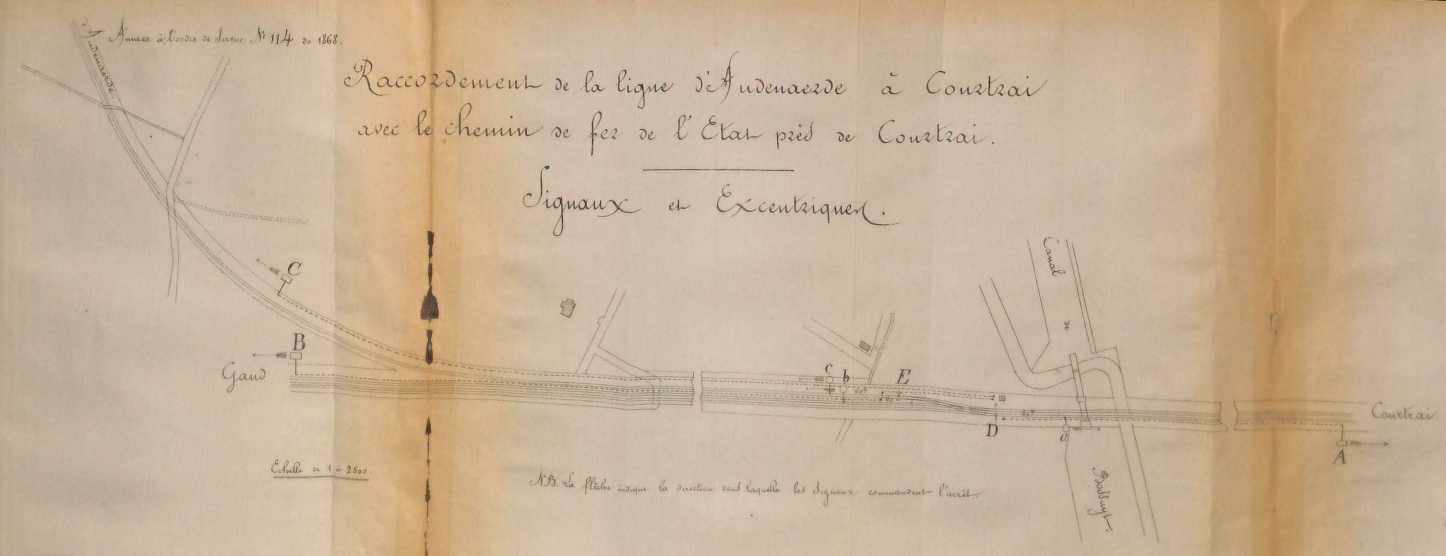 Annexe à l'ordre de Service N° 114 de 1868.
Audenaerde.
Raccordement de la ligne d'Audenaerde à Courtrai
avec le chemin de fer de l'Etat près de Courtrai.
Signaux et Excentriques.
C
B
Gand
Canal
de
Bossuyt.
c
b
E
D
a
A
Courtrai
Echelle de 1 à 2500.
NB. La flèche indique la direction dans laquelle les Signaux commandent l'arrêt